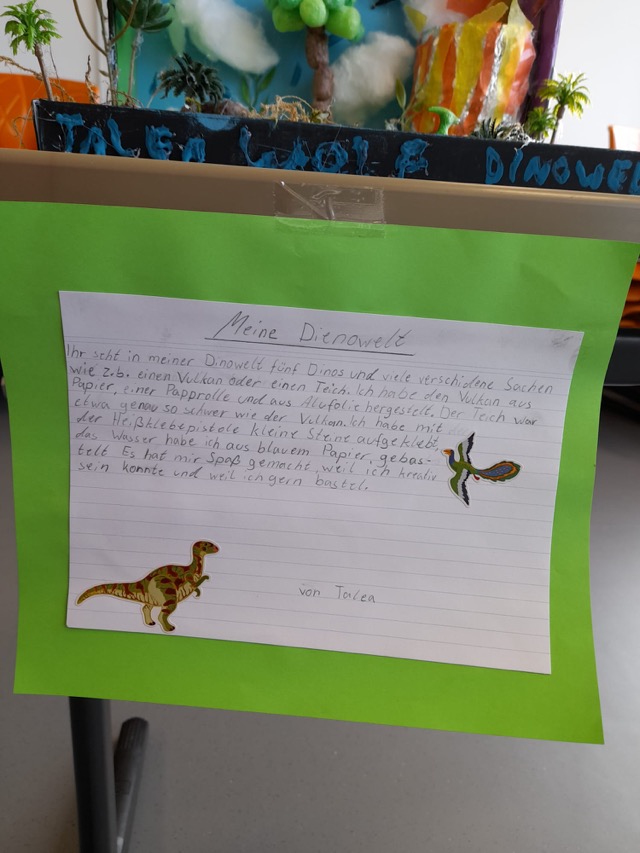 TALEA DINOWEL
Meine Dienowelt
Ihr seht in meiner Dinowelt fünf Dinos und viele verschidene Sachen
wie z.b. einen Vulkan oder einen Teich. Ich habe den Vulkan aus
Papier, einer Papprolle und aus Alufolie hergestellt. Der Teich war
etwa genau so schwer wie der Vulkan. Ich habe mit
der Heißklebepistole kleine Steine aufgeklebt,
das Wasser, habe ich aus blauem Papier, gebas-
telt. Es hat mir Spaß gemacht, weil ich kreativ
sein konnte und weil ich gern bastel.
von Talea